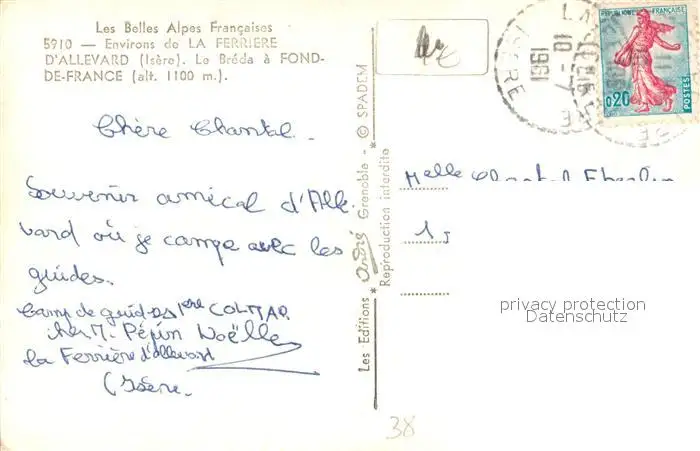 Les Belles Alpes Françaises
5910 — Environs de LA FERRIERE
D'ALLEVARD (Isère). Le Bréda à FOND-
DE-FRANCE (alt. 1100 m.).
Chère Chantal -
Souvenir amical d'Alle
vard où je campe avec les
guides.
Camp de guides 1ère COLMAR
chez M. Pépin Noëlle
La Ferrière d'allevard
(Isère.
Les Editions * André Grenoble - © SPADEM
* Reproduction interdite
ISERE
10 -7
1961
REPUBLIQUE FRANÇAISE
0,20
POSTES
Melle Chantal
1
privacy protection
Datenschutz
38